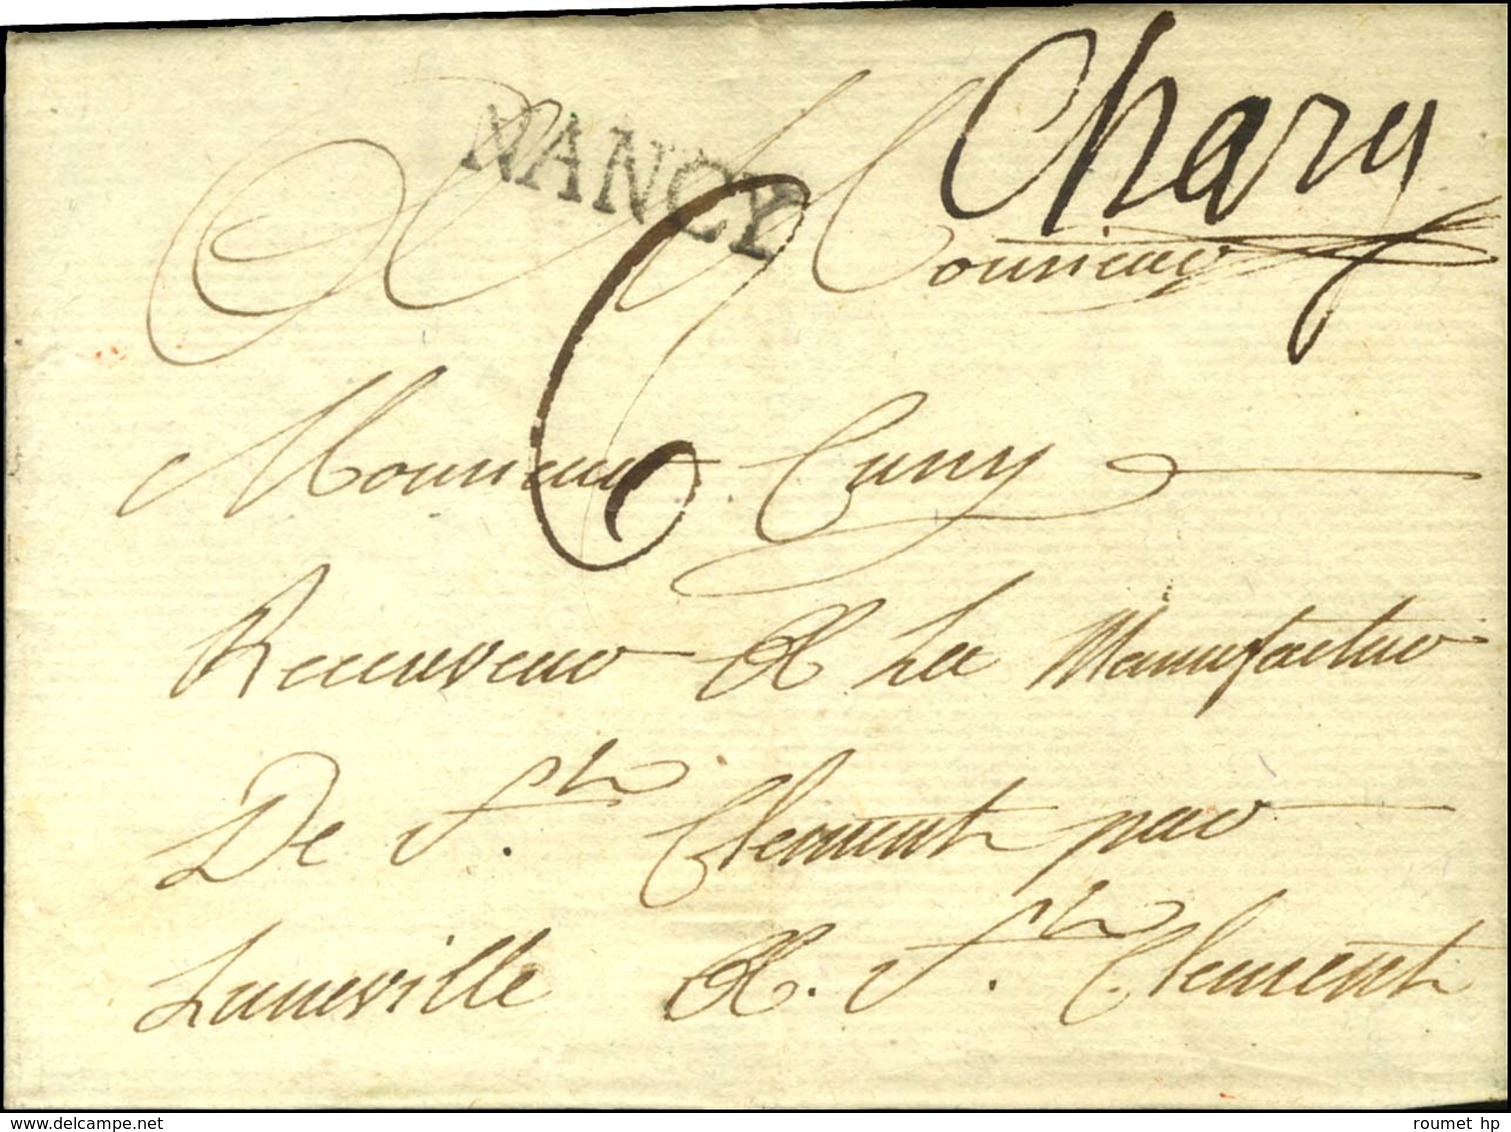 NANCY
Charg
A Monsieur
6
Monsieur Cuny
Receveur de La Manufacture
De St. Clement par
Luneville A. St. Clement
roumet hp